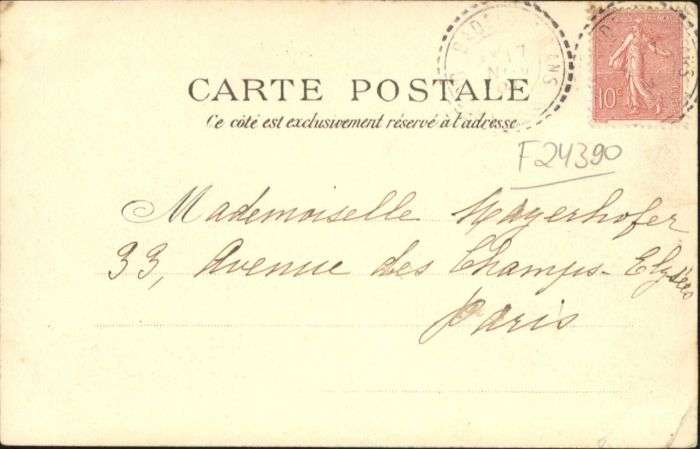 CARTE POSTALE
Ce côté est exclusivement réservé à l'adresse
10c
F24390
Mademoiselle Mayerhofer
33, Avenue des Champs-Elysées
Paris